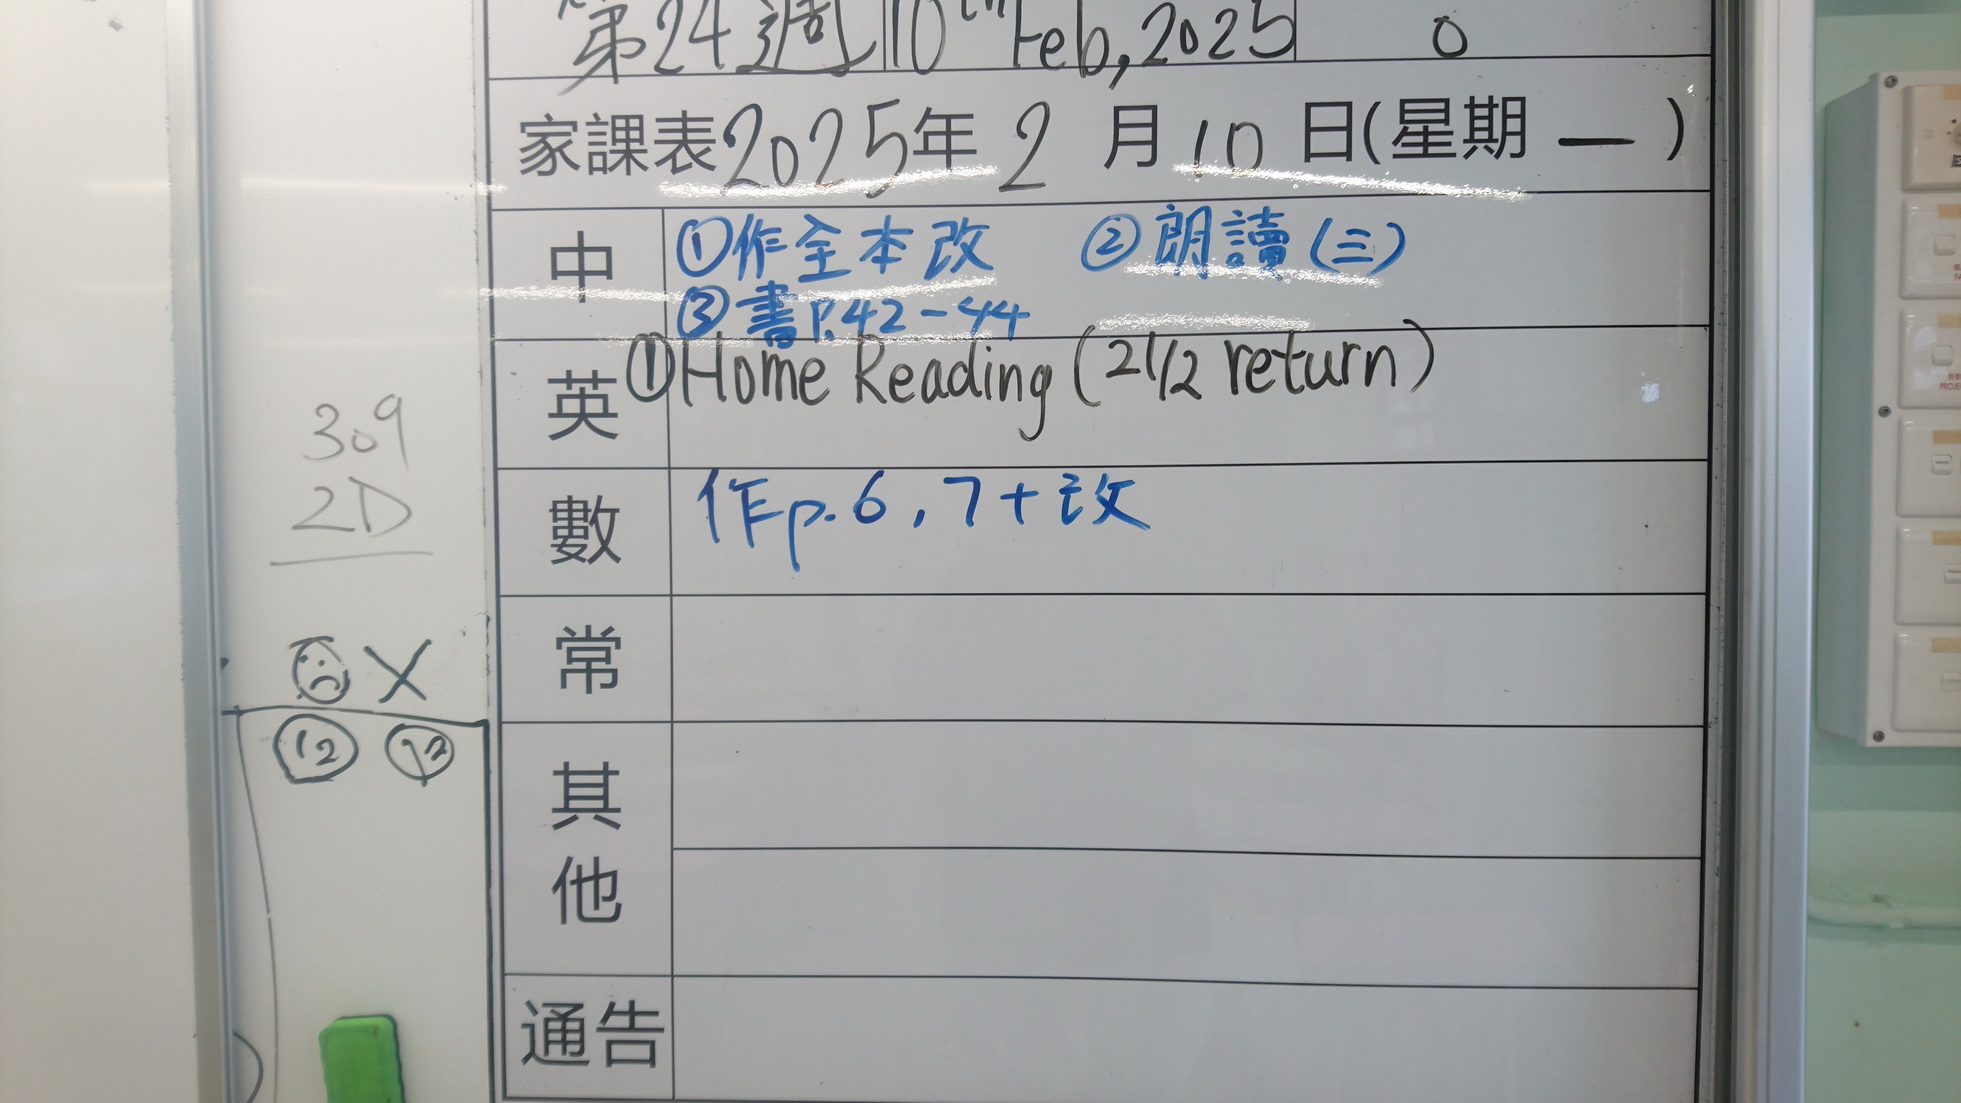 第24週 10th Feb, 2025 0
家課表2025年2月10日(星期一)
中 ①作全本改 ②朗讀(三)
③書P.42-44
英 ①Home Reading (21/2 return)
數 作p.6,7+改
309
2D
常
X
12 12
其
他
通告